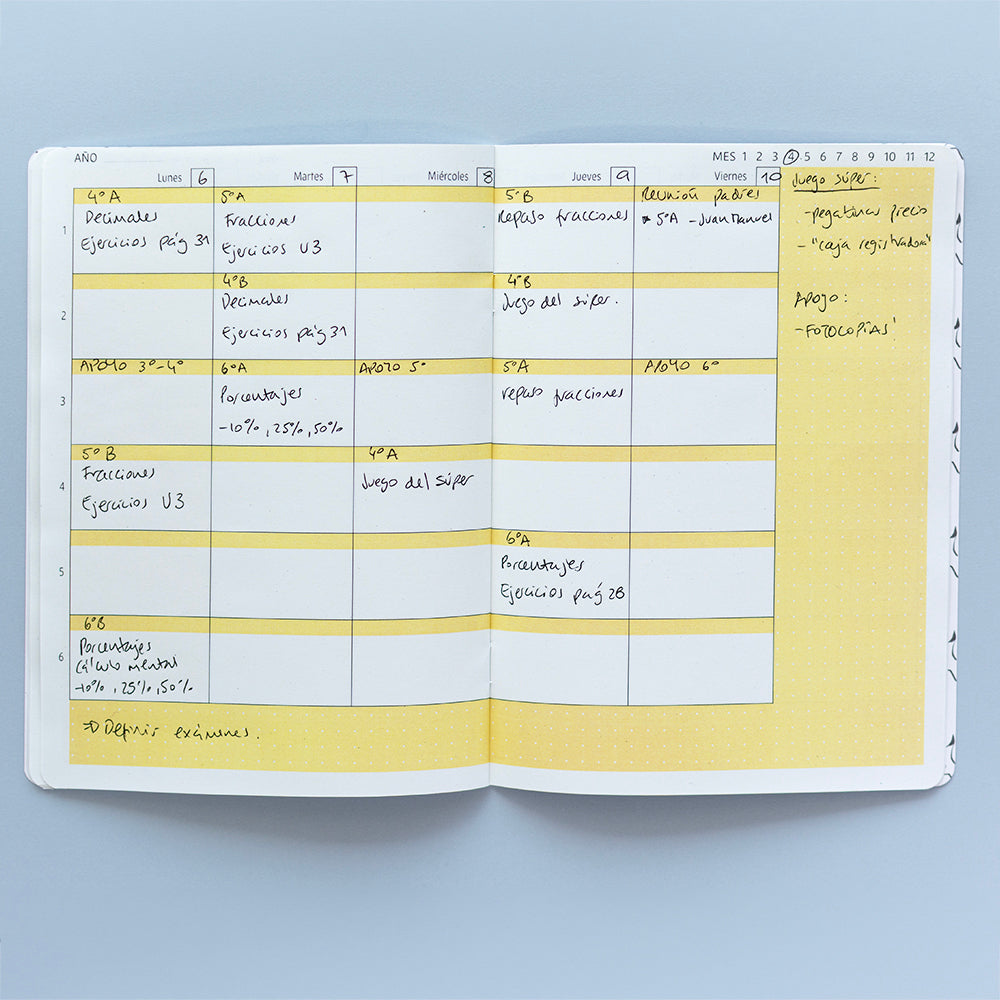 AÑO
MES 1 2 3 4 5 6 7 8 9 10 11 12
Lunes 6
Martes 7
Miércoles 8
Jueves 9
Viernes 10
1
4º A
Decimales
Ejercicios pág 31
5º A
Fracciones
Ejercicios U3
5º B
Repaso fracciones
Reunión padres
* 5ºA - Juan Manuel
2
4º B
Decimales
Ejercicios pág 31
4º B
Juego del súper.
3
APOYO 3º-4º
6ºA
Porcentajes
-10%, 25%, 50%
APOYO 5º
5ºA
repaso fracciones
APOYO 6º
4
5º B
Fracciones
Ejercicios U3
4º A
Juego del súper
5
6ºA
Porcentajes
Ejercicios pág 28
6
6ºB
Porcentajes
Cálculo mental
-10%, 25%, 50%
⇒ Definir exámenes.
Juego súper:
- pegatinas precio
- "caja registradora"
Apoyo:
- FOTOCOPIAS!